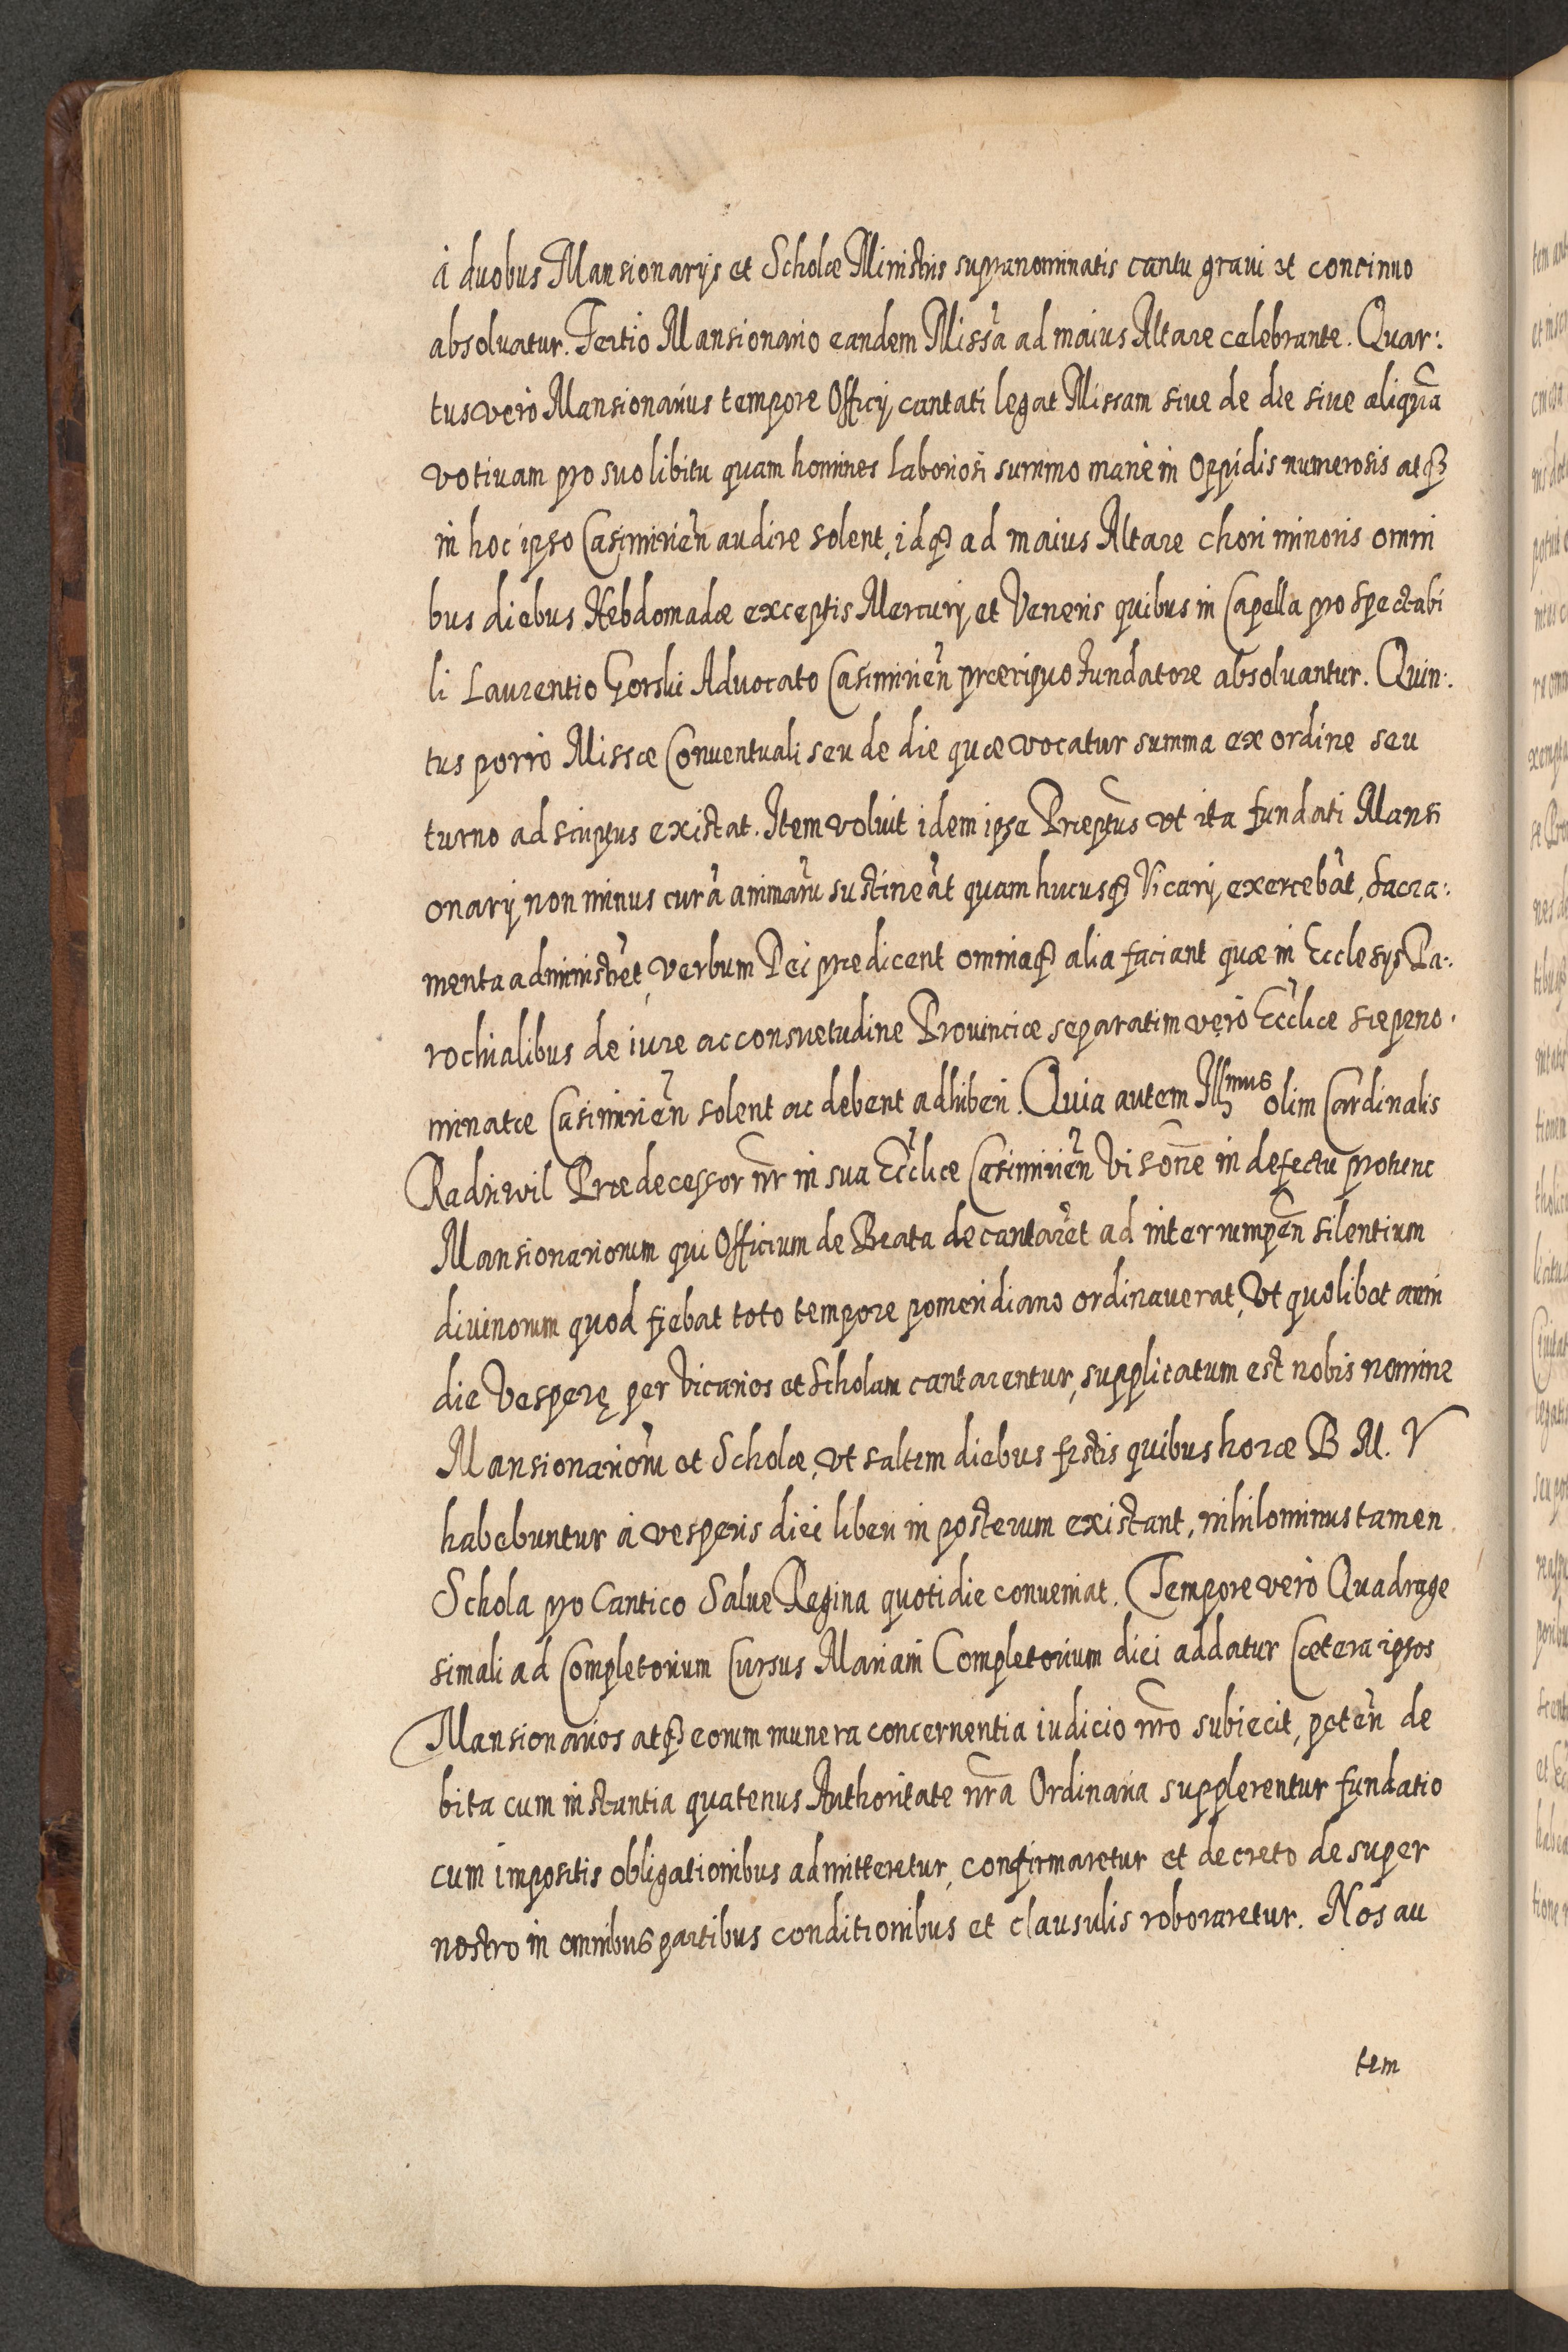 à duobus Mansionarijs et Scholæ Ministris supranominatis cantu graui et concinno
absoluatur. Tertio Mansionario eandem Missã ad maius Altare celebrante. Quar:
tus vero Mansionarius tempore Officij cantati legat Missam siue de die siue aliquã
votiuam pro suo libitu quam homines laboriosi summo manè in Oppidis numerosis atqꝫ
in hoc ipso Casimirień audire solent, idqꝫ ad maius Altare chori minoris omni
bus diebus Hebdomadæ exceptis Mercurij et Veneris quibus in Capella pro Spectabi
li Laurentio Gorski Aduocato Casimirień præcipuo Fundatore absoluantur. Quin:
tus porrò Missæ Conuentuali seu de die quæ vocatur summa ex ordine seu
turno adscriptus existat. Item voluit idem ipse Præptus vt ita fundati Mansi
onarij non minus curã animarũ sustineãt quam hucusqꝫ Vicarij exercebãt, Sacra:
menta administrẽt, verbum Dei prædicent omniaqꝫ alia faciant quæ in Ecclesijs Pa:
rochialibus de iure ac consuetudine Prouinciæ separatim verò Eccliæ sæpeno:
minatæ Casimirień solent ac debent adhiberi. Quia autem Illmus olim Cardinalis
Radziwil Prædecessor nr̃ in sua Ecclæ Casimirień Visõne in defectu protunc
Mansionariorum qui Officium de Beata decantarẽt ad interrumpeñ silentium
diuinorum quod fiebat toto tempore pomeridiano ordinauerat, vt quolibet anni
die Vesperę per Vicarios et Scholam cantarentur, supplicatum est nobis nomine
Mansionariorũ et Scholæ, vt saltem diebus festis quibus horæ B M. V
habebuntur à vesperis diei liberi in posterum existant, nihilominus tamen
Schola pro Cantico Salue Regina quotidie conueniat. Tempore verò Quadrage
simali ad Completorium Cursus Mariani Completorium diei addatur Cætera ipsos
Mansionarios atqꝫ eorum munera concernentia iudicio nr̃o subiecit, peteñ de
bita cum instantia quatenus Authoritate nr̃a Ordinaria supplerentur fundatio
cum impositis obligationibus admitteretur, confirmaretur et decreto desuper
nostro in omnibus partibus conditionibus et clausulis roboraretur. Nos au
tem